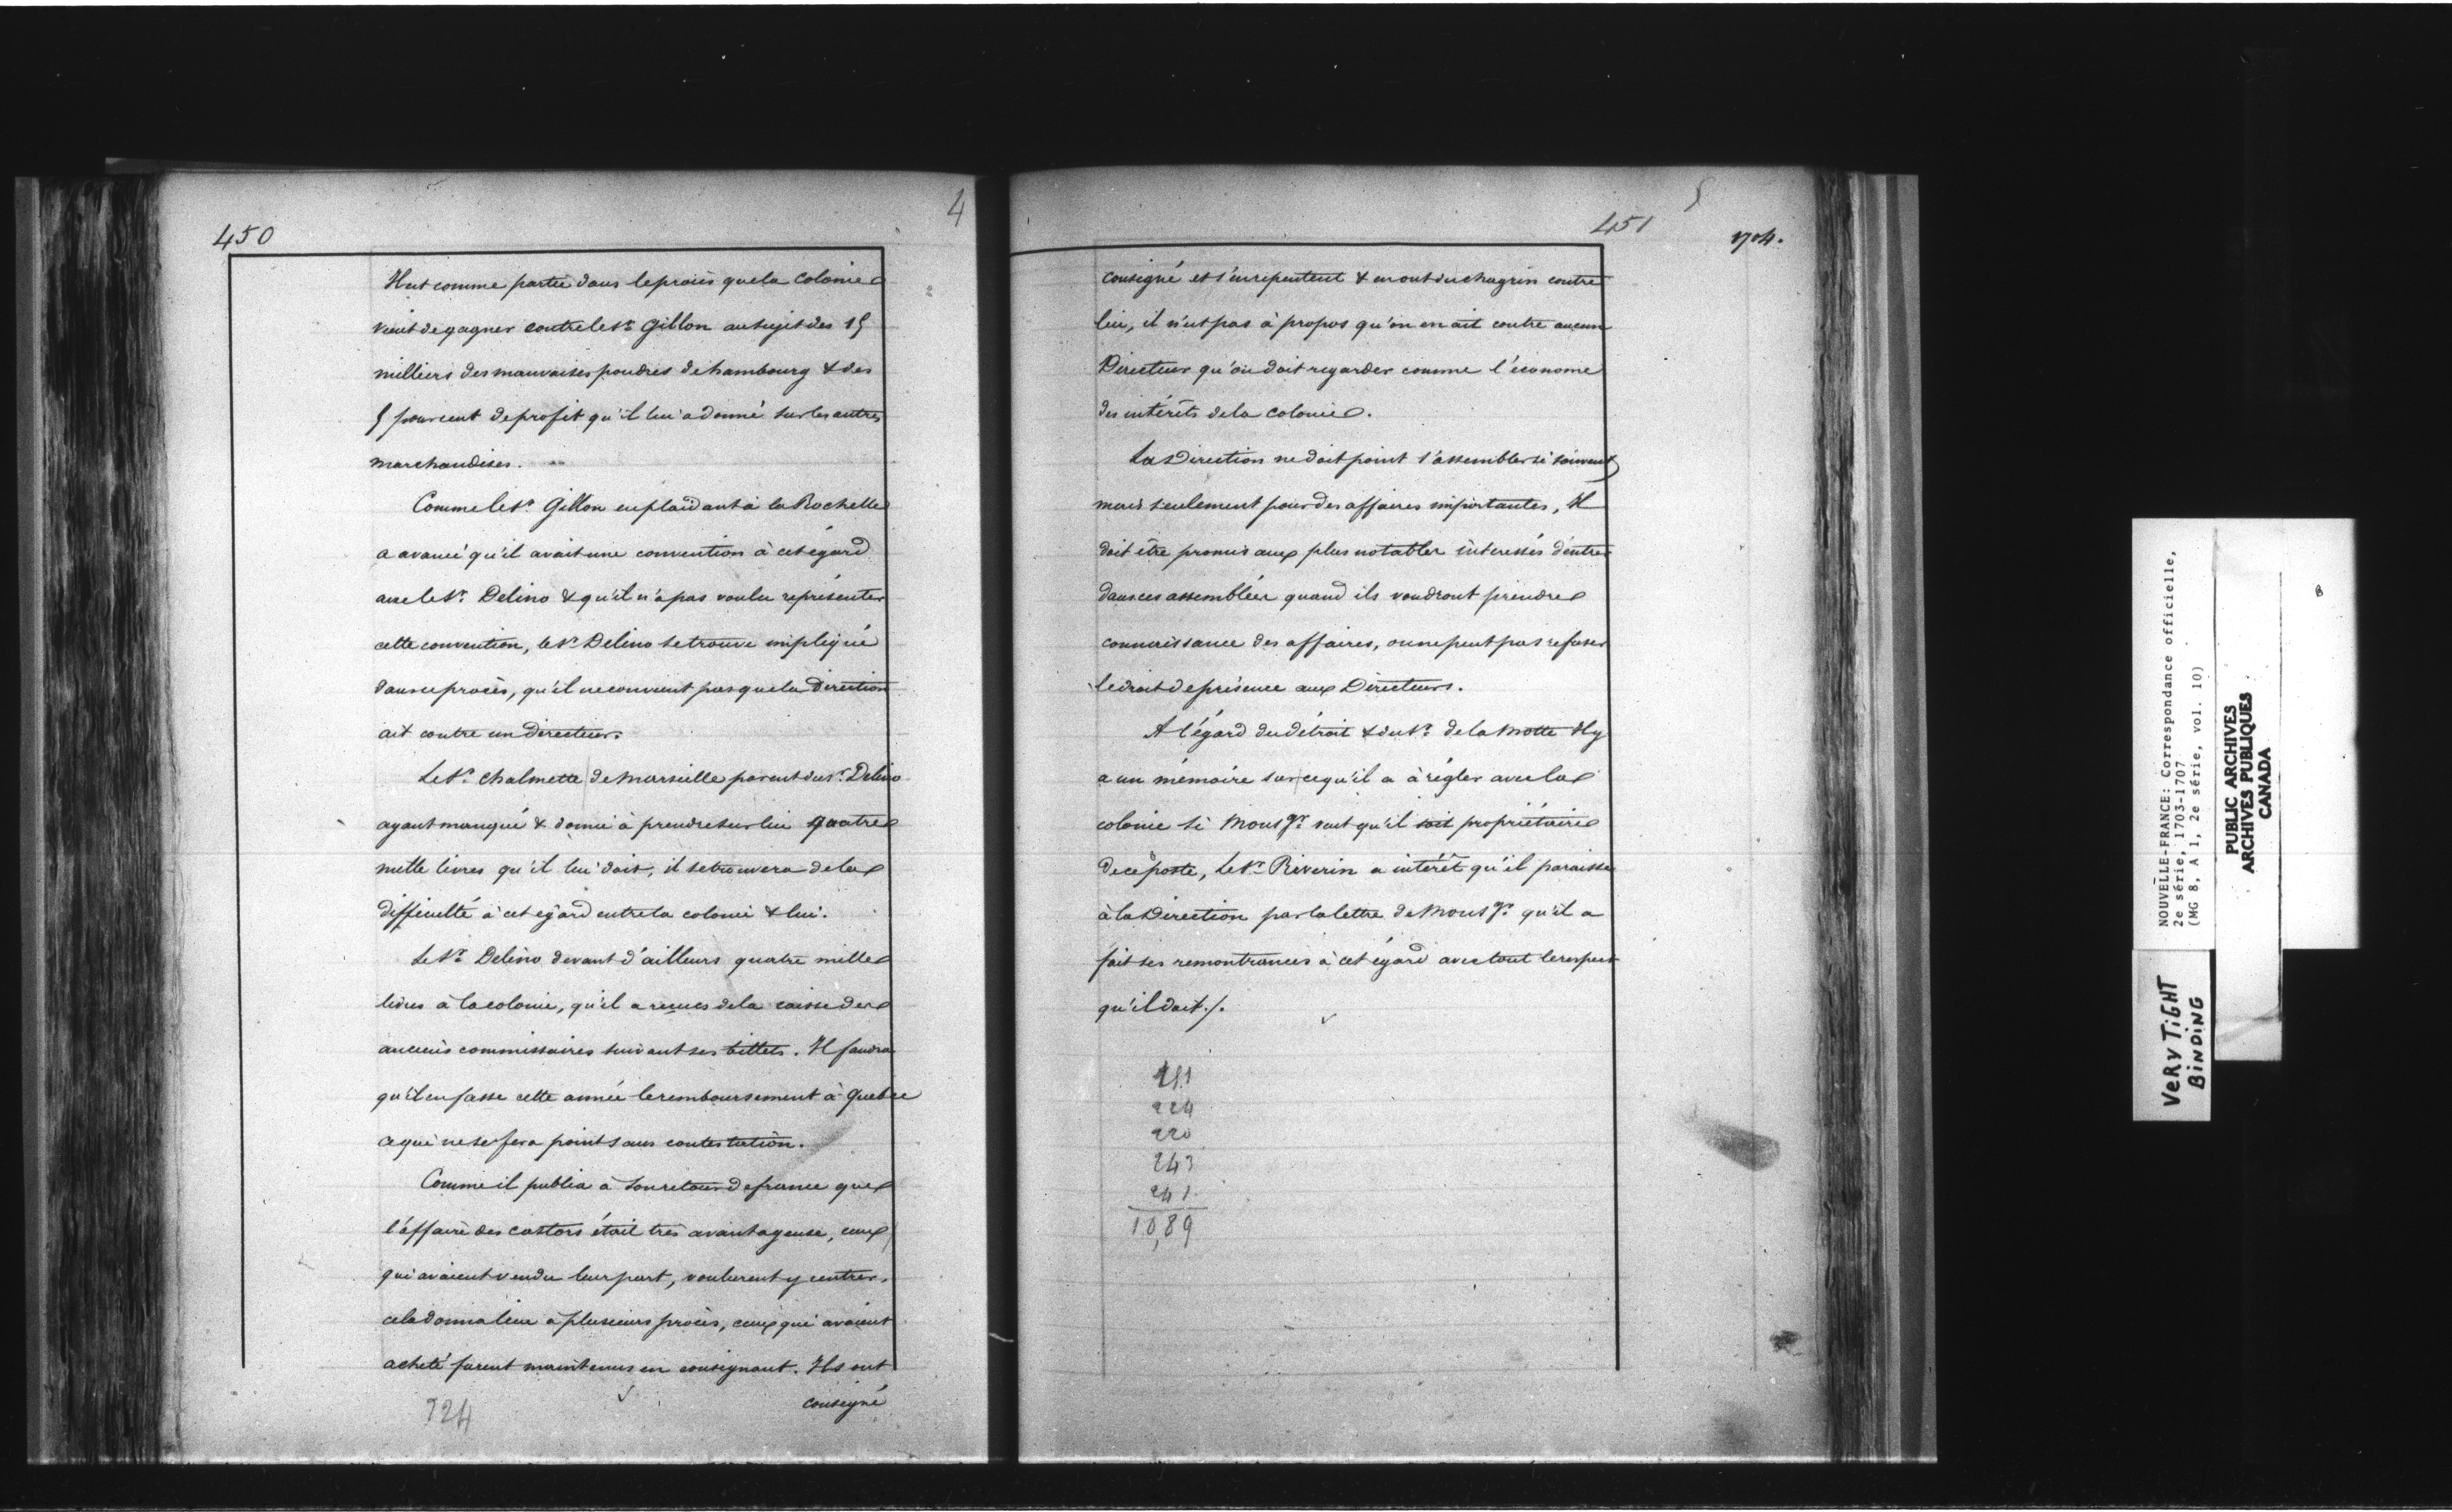 450
4
Il est comme partie dans le procès que la Colonie
vient de gagner contre le Sr. Gillon au sujet des 15
milliers des mauvaises poudres de hambourg & des
5 pour cent de profit qu'il lui a donné sur les autres
marchandises.
Comme le Sr. Gillon en plaidant à la Rochelle
a avancé qu'il avait une convention à cet égard
avec le Sr. Delino & qu'il n'a pas voulu représenter
cette convention, le Sr. Delino se trouve impliqué
dans ce procès, qu'il ne convient pas que la Direction
ait contre un directeur.
Le Sr. Chalmette de Marseille parent du Sr. Delino
ayant manqué & donné à prendre sur lui quatre
mille livres qu'il lui doit, il se trouvera de la
difficulté à cet égard entre la colonie & lui.
Le Sr. Delino devant d'ailleurs quatre mille
livres à la colonie, qu'il a reçues de la caisse des
anciens commissaires suivant ses billets. Il faudra
qu'il en fasse cette année le remboursement à Quebec
ce qui ne se fera point sans contestation.
Comme il publia à son retour de france que
l'affaire des castors était très avantageuse, ceux
qui avaient vendu leur part, voulurent y rentrer,
cela donna lieu à plusieurs procès, ceux qui avaient
acheté furent maintenus en consignant. Ils ont
consigné
224
5
451
1704.
consigné et s'en repentent & en ont du chagrin contre
lui, il n'est pas à propos qu'on en ait contre aucun
Directeur qu'on doit regarder comme l'économe
des intérêts de la colonie.
La Direction ne doit point s'assembler si souvent
mais seulement pour des affaires importantes, Il
doit être promis aux plus notables intéressés d'entrer
dans ces assemblées quand ils voudront prendre
connaissance des affaires, on ne peut pas refuser
le droit de présence aux Directeurs.
A l'égard du détroit & du Sr. de la Motte Il y
a un mémoire sur ce qu'il a à régler avec la
colonie si Mons gr. veut qu'il soit propriétaire
de ce poste, Le Sr. Riverin a intérêt qu'il paraisse
à la Direction par la lettre de Mons gr. qu'il a
fait ses remontrances à cet égard avec tout le respect
qu'il doit./.
224
220
243
241
10,89
NOUVELLE-FRANCE: Correspondance officielle,
2e série, 1703-1707
(MG 8, A 1, 2e série, vol. 10)
PUBLIC ARCHIVES
ARCHIVES PUBLIQUES
CANADA
VERY TIGHT
BINDING